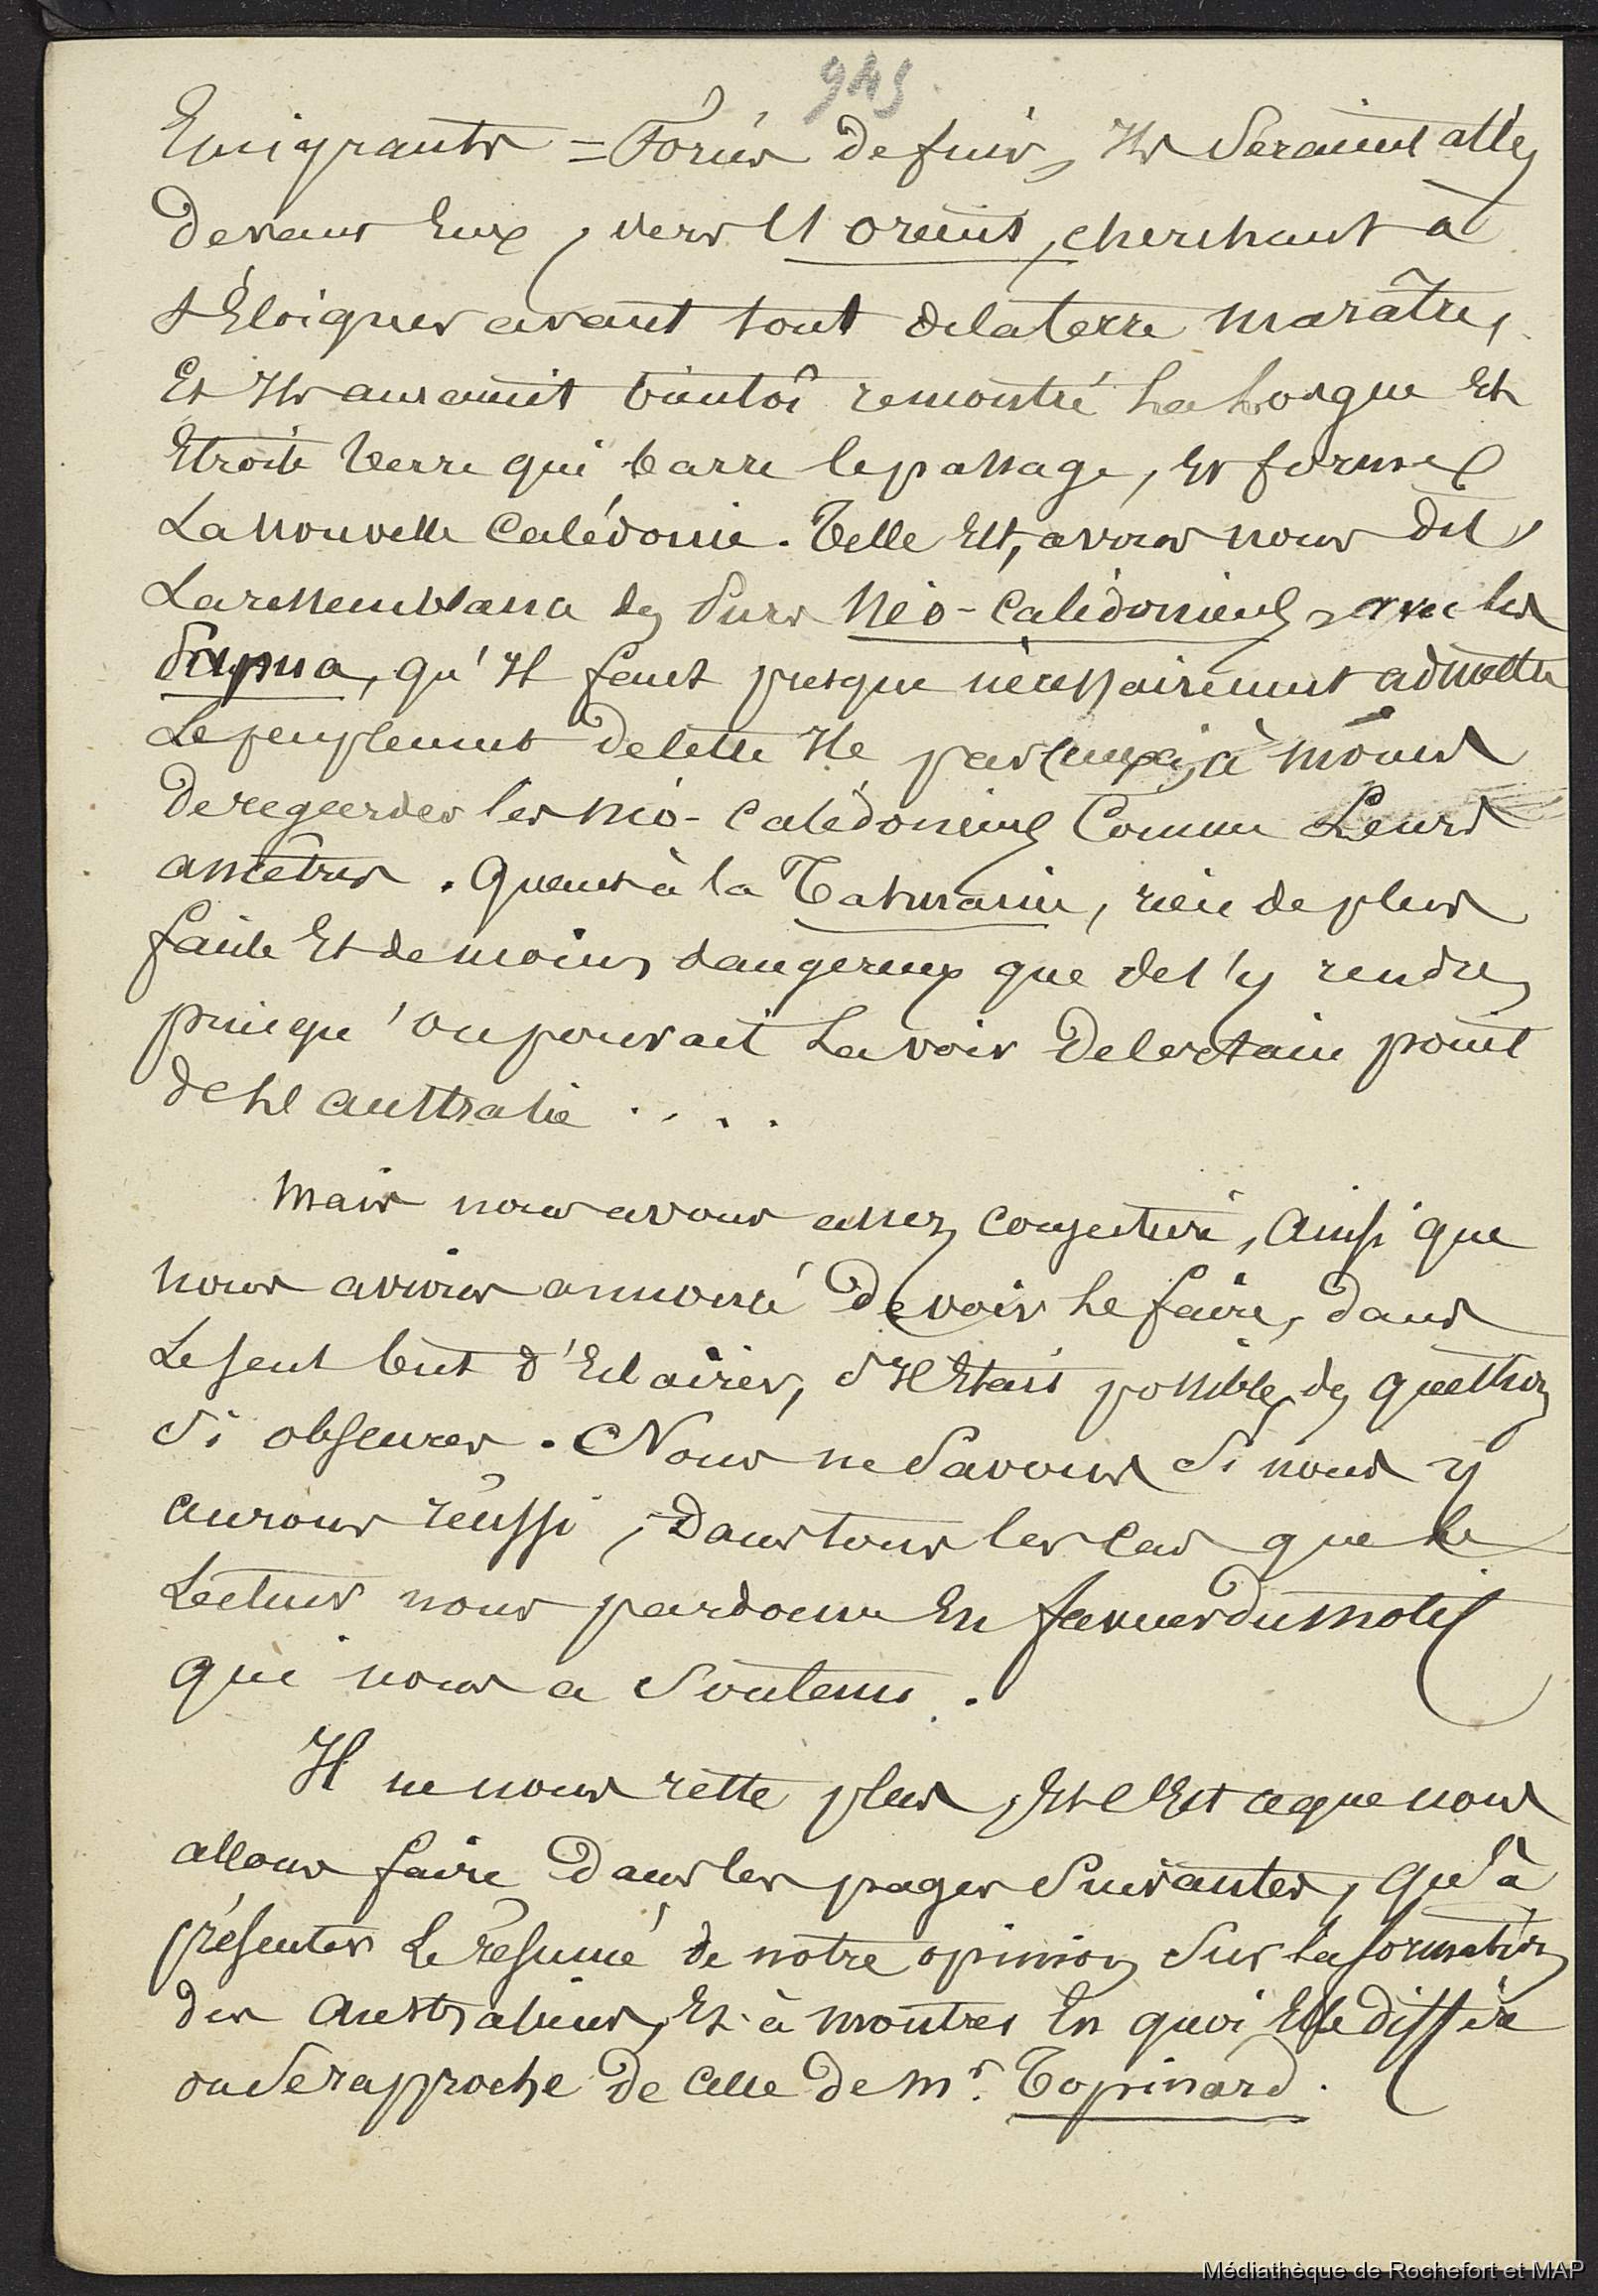 945
Emigrants = Forcés de fuir, Ils seraient allés
devant eux, vers l'orient, cherchant à
s'Éloigner avant tout de la terre marâtre,
Et Ils auraient bientôt rencontré La Longue Et
Etroite terre qui barre le passage, et forme
La nouvelle Calédonie. Telle Est, avons nous dit,
La ressemblance des purs Néo-Calédoniens avec les
Papua, qu'Il faut presque nécessairement admettre
Le peuplement de cette Ile par ceux ci, à moins
de regarder les néo-Calédoniens Comme Leurs
ancêtres. Quant à la Tasmanie, rien de plus
facile Et de moins dangereux que de s'y rendre,
puisqu'on pouvait La voir de certain point
de l'australie ....
Mais nous avons assez conjecturé, Ainsi que
nous avions annoncé devoir le faire, dans
Le seul but d'Eclairer, s'Il Etait possible, des questions
si obscures. Nous ne savons si nous y
aurons réussi, Dans tous les cas que le
Lecteur nous pardonne En faveur du motif
qui nous a soutenu.
Il ne nous reste plus, Et c'Est ce que nous
allons faire dans les pages suivantes, qu'à
présenter Le résumé de notre opinion sur la formation
des Australiens, Et à montrer En quoi Elle diffère
ou se rapproche de celle de Mr. Topinard.
Médiathèque de Rochefort et MAP